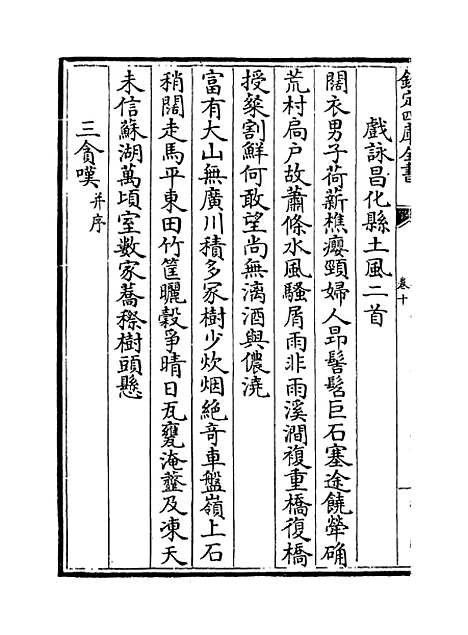 欽定四庫全書
卷十
戲詠昌化縣土風二首
闊衣男子荷薪樵癭頸婦人昻髻髫巨石塞途饒犖确
荒村扃户故蕭條水風騷屑雨非雨溪澗複重橋復橋
授粲割鮮何敢望尚無漓酒與儂澆
富有大山無廣川積多冢樹少炊烟絶奇車盤嶺上石
稍闊走馬平東田竹筐曬穀爭晴日瓦甕淹虀及凍天
未信蘇湖萬頃室數家蕎穄樹頭懸
三貪嘆并序